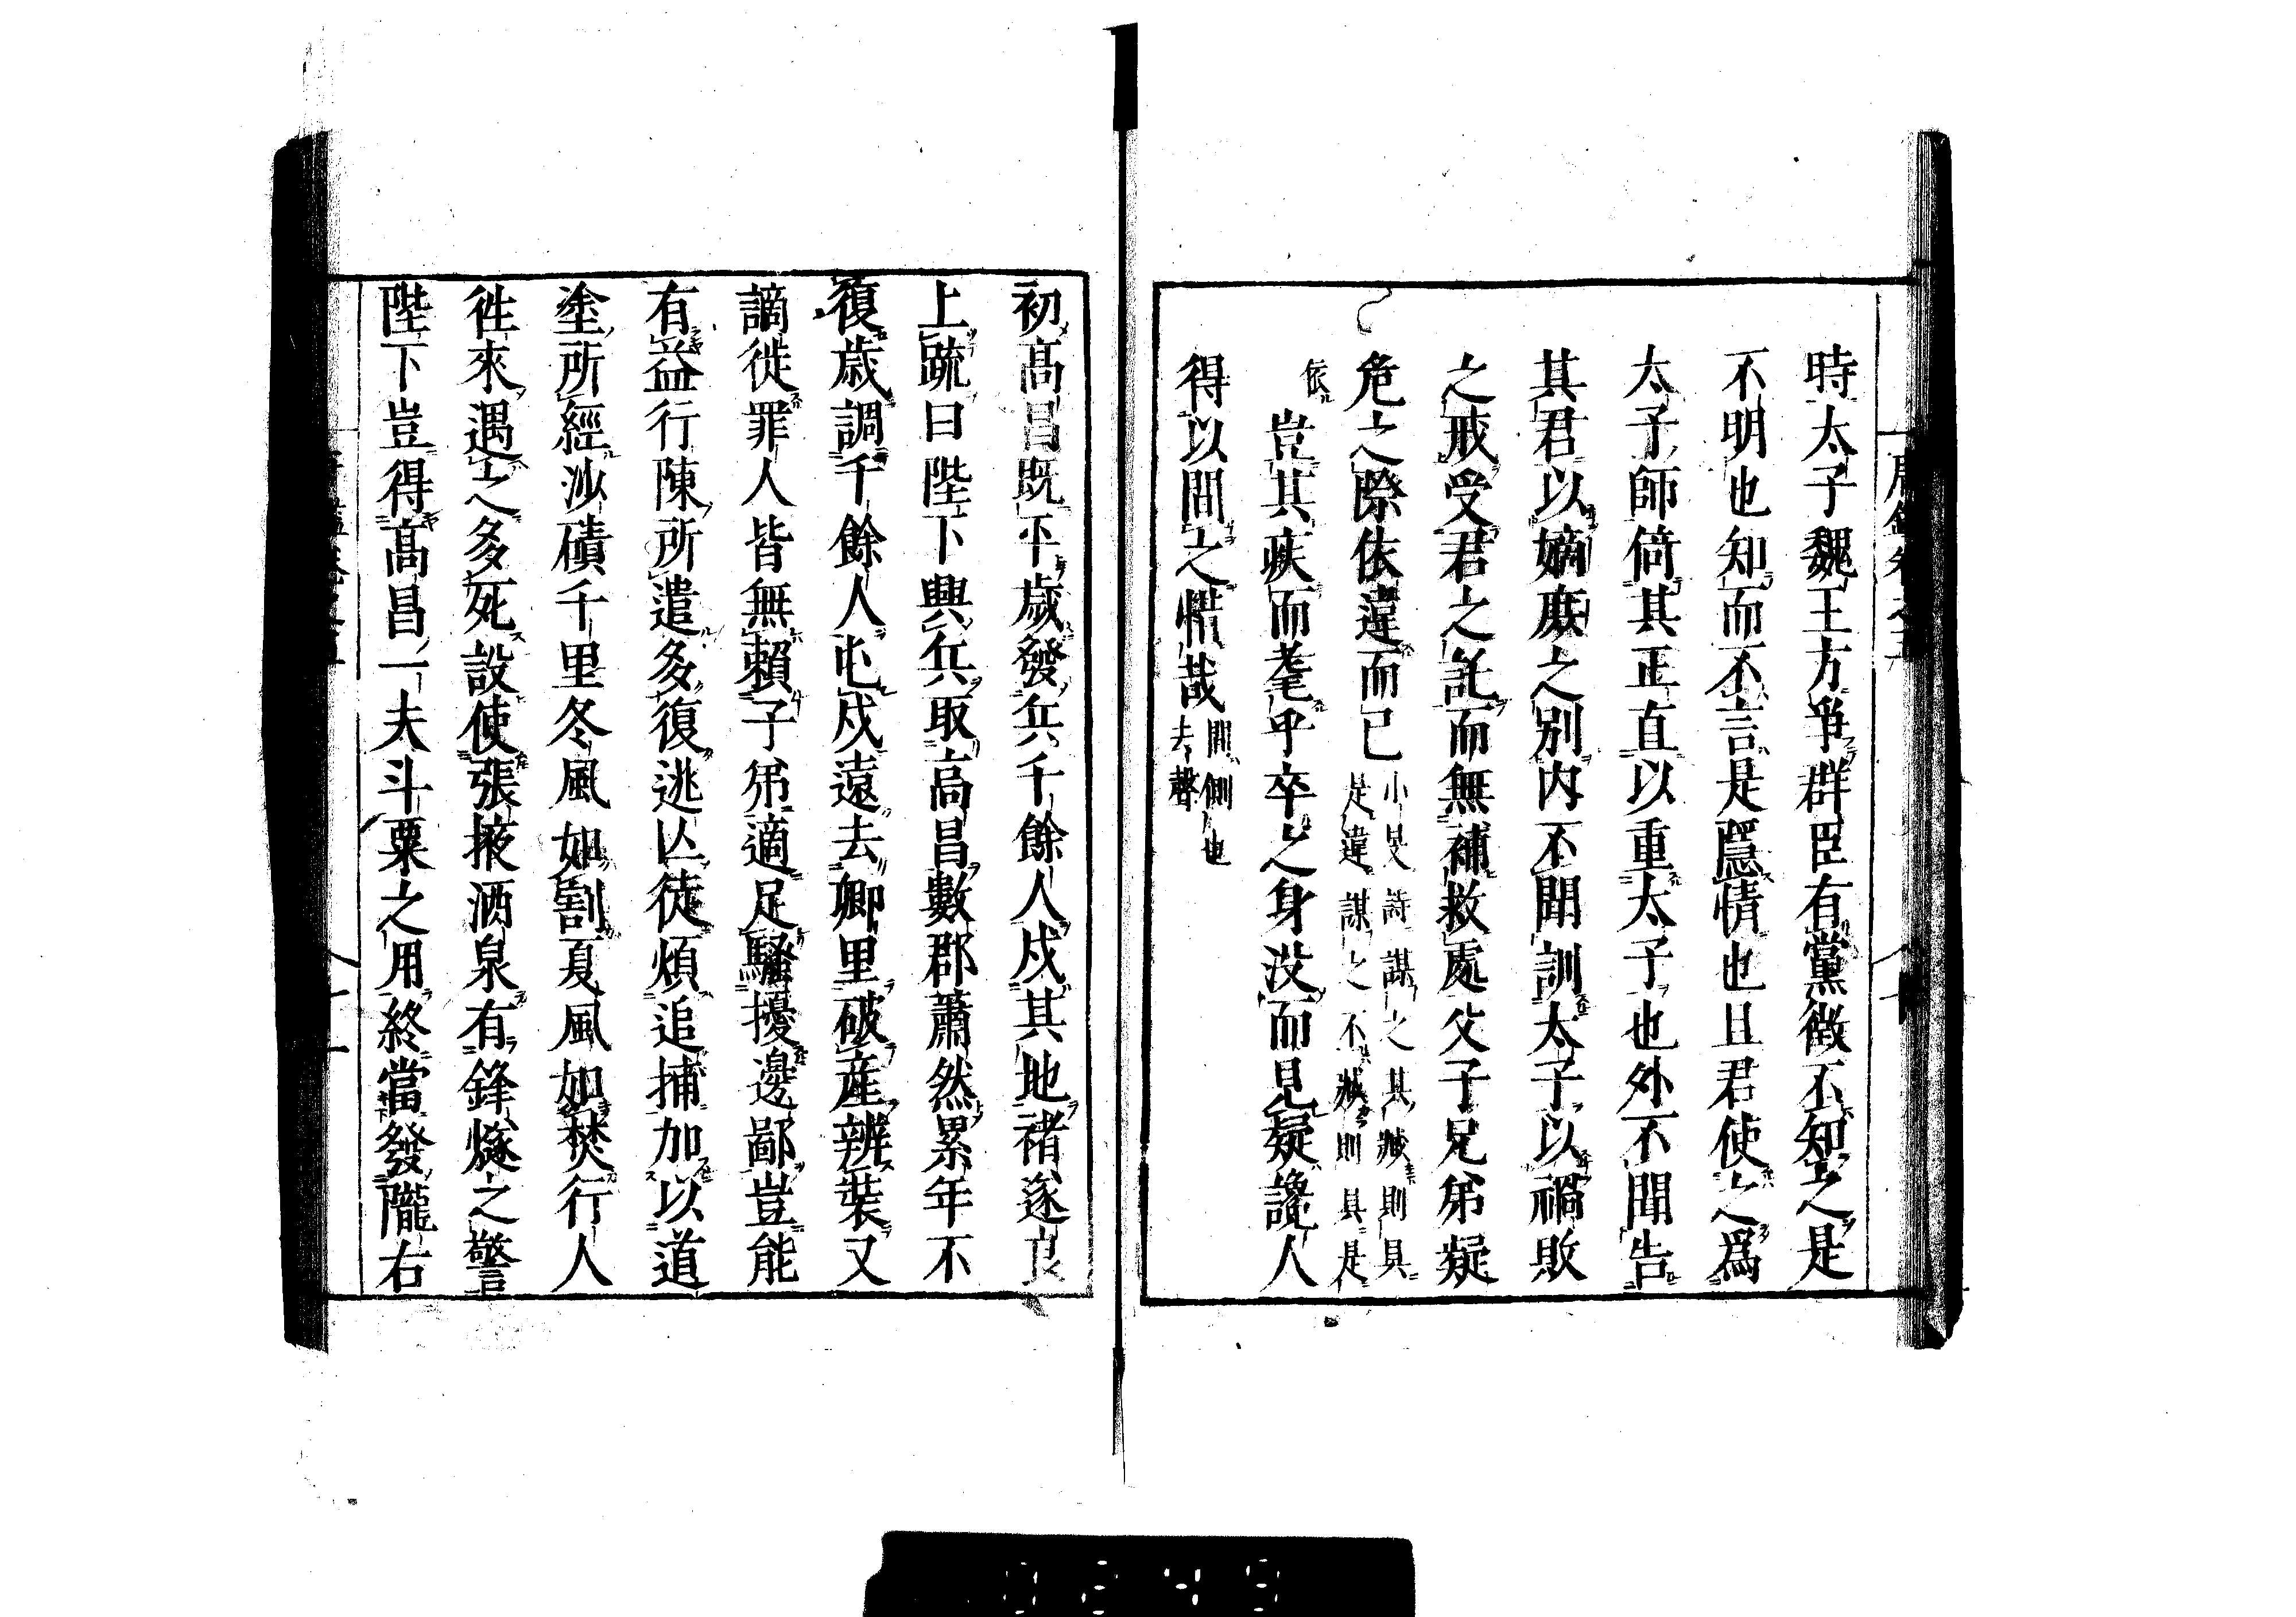 時太子魏王方爭群臣有黨徵不知之是
不明也知而不言是隱情也且君使之爲
太子師倚其正直以重太子也外不聞告
其君以嫡庶之別内不聞訓太子以禍敗
之戒受君之託而無補救處父子兄弟疑
危之際依違而已小旻詩謀之其臧則具
是違謀之不臧則具是
依
豈其疾而耄乎卒之身没而見疑讒人
得以間之惜哉間側也
去聲
初高昌既平歲發兵千餘人戍其地褚遂良
上疏曰陛下興兵取高昌數郡蕭然累年不
復歲調千餘人屯戍遠去鄉里破產辨裝又
謫徙罪人皆無賴子弟適足騷擾邊鄙豈能
有益行陳所遣多復逃亾徒煩追捕加以道
塗所經沙磧千里冬風如割夏風如焚行人
徃來遇之多死設使張掖酒泉有鋒燧之警
陛下豈得高昌一夫斗粟之用終當發隴右